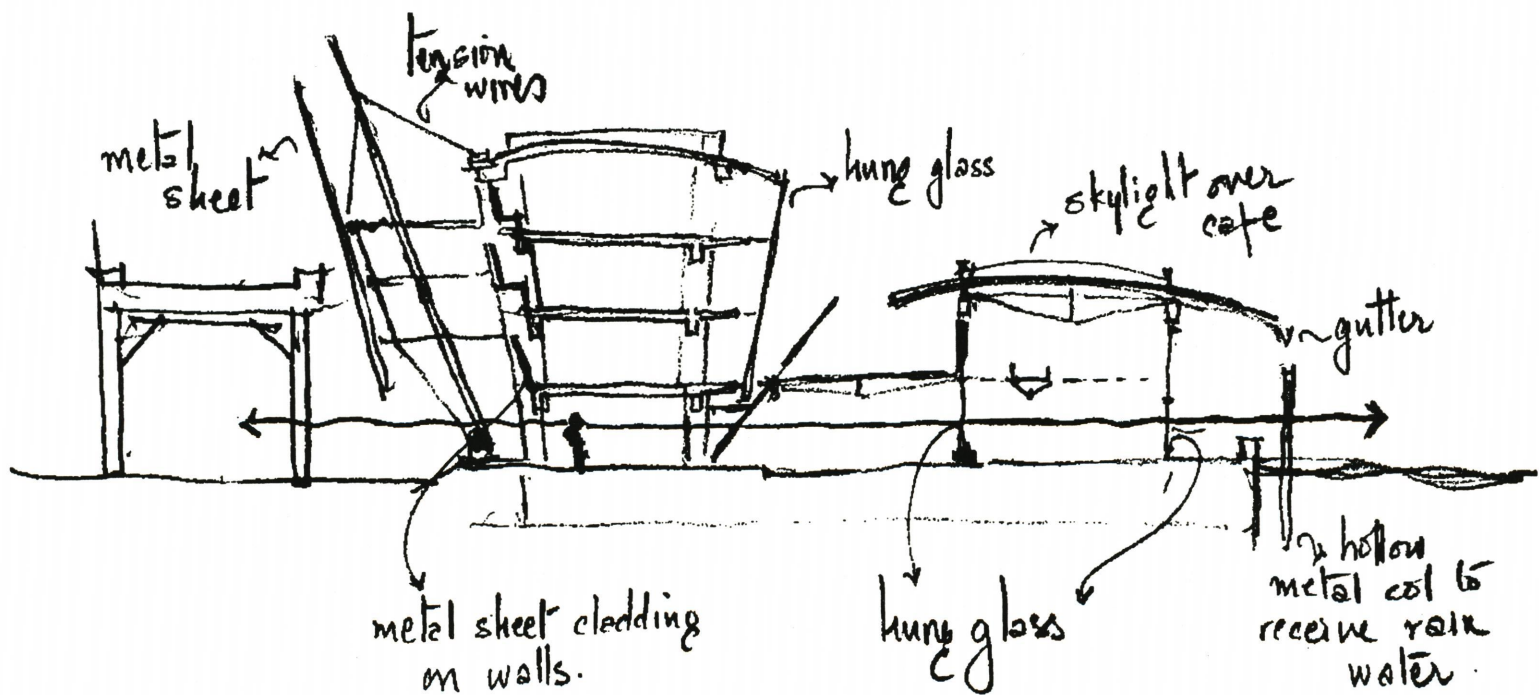 tension
wires
metal
sheet
hung glass
skylight over
cafe
gutter
metal sheet cladding
on walls.
hung glass
hollow
metal col to
receive rain
water.